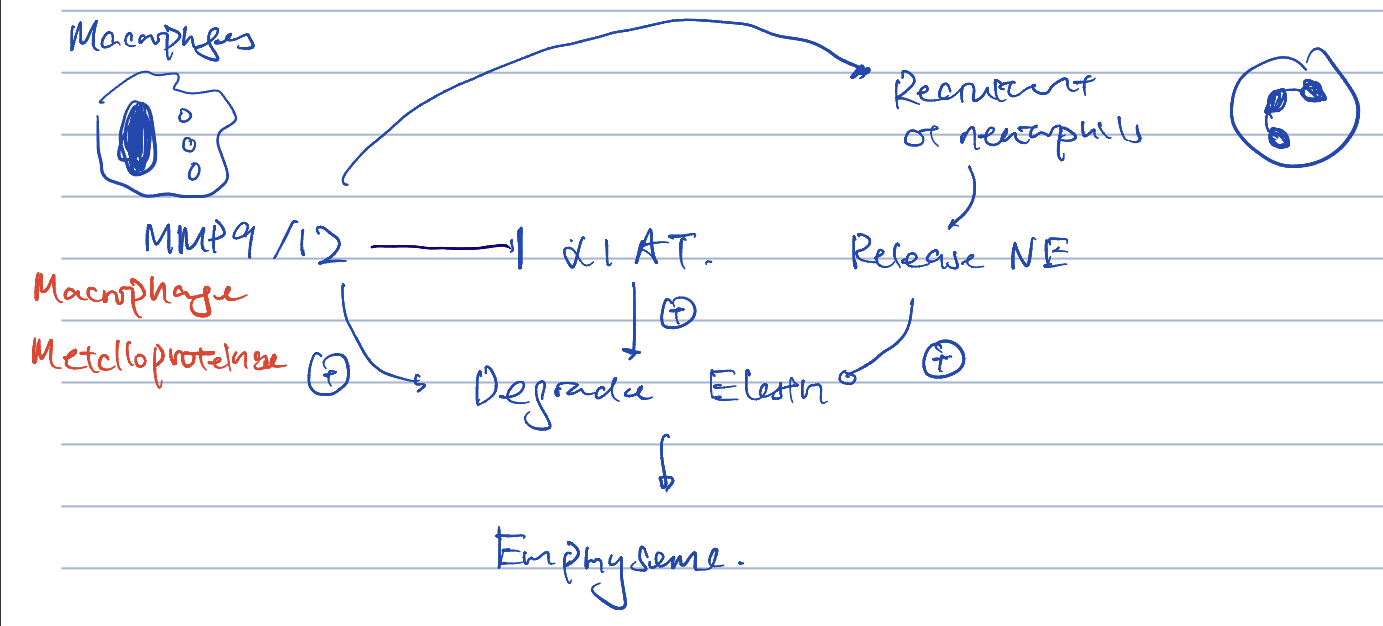 Macrophages
Recruitment
of neutrophils
MMP9/12 α1 AT. Release NE
Macrophage
Metalloproteinase
+
+
+
Degrade Elastin
Emphysema.